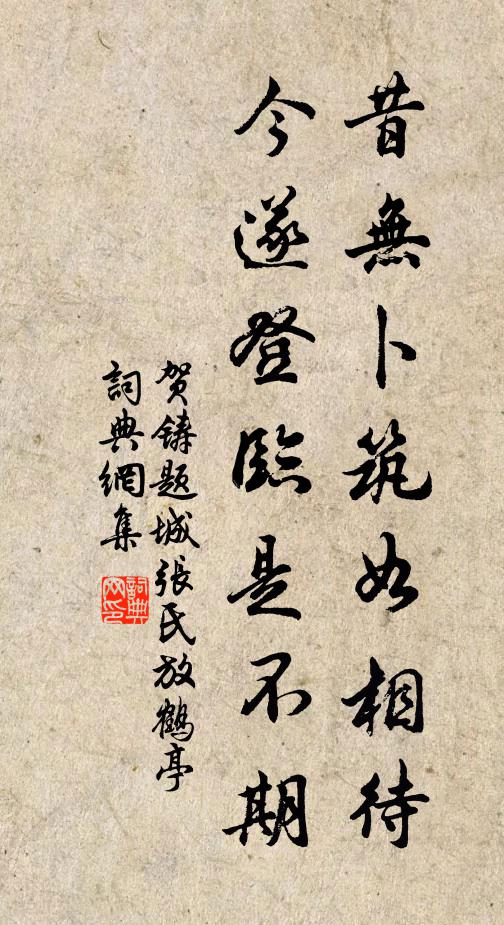 昔無卜筑如相待
今遂登臨是不期
贺鋳题城張氏放鶴亭
詞典網集
詞典
网印